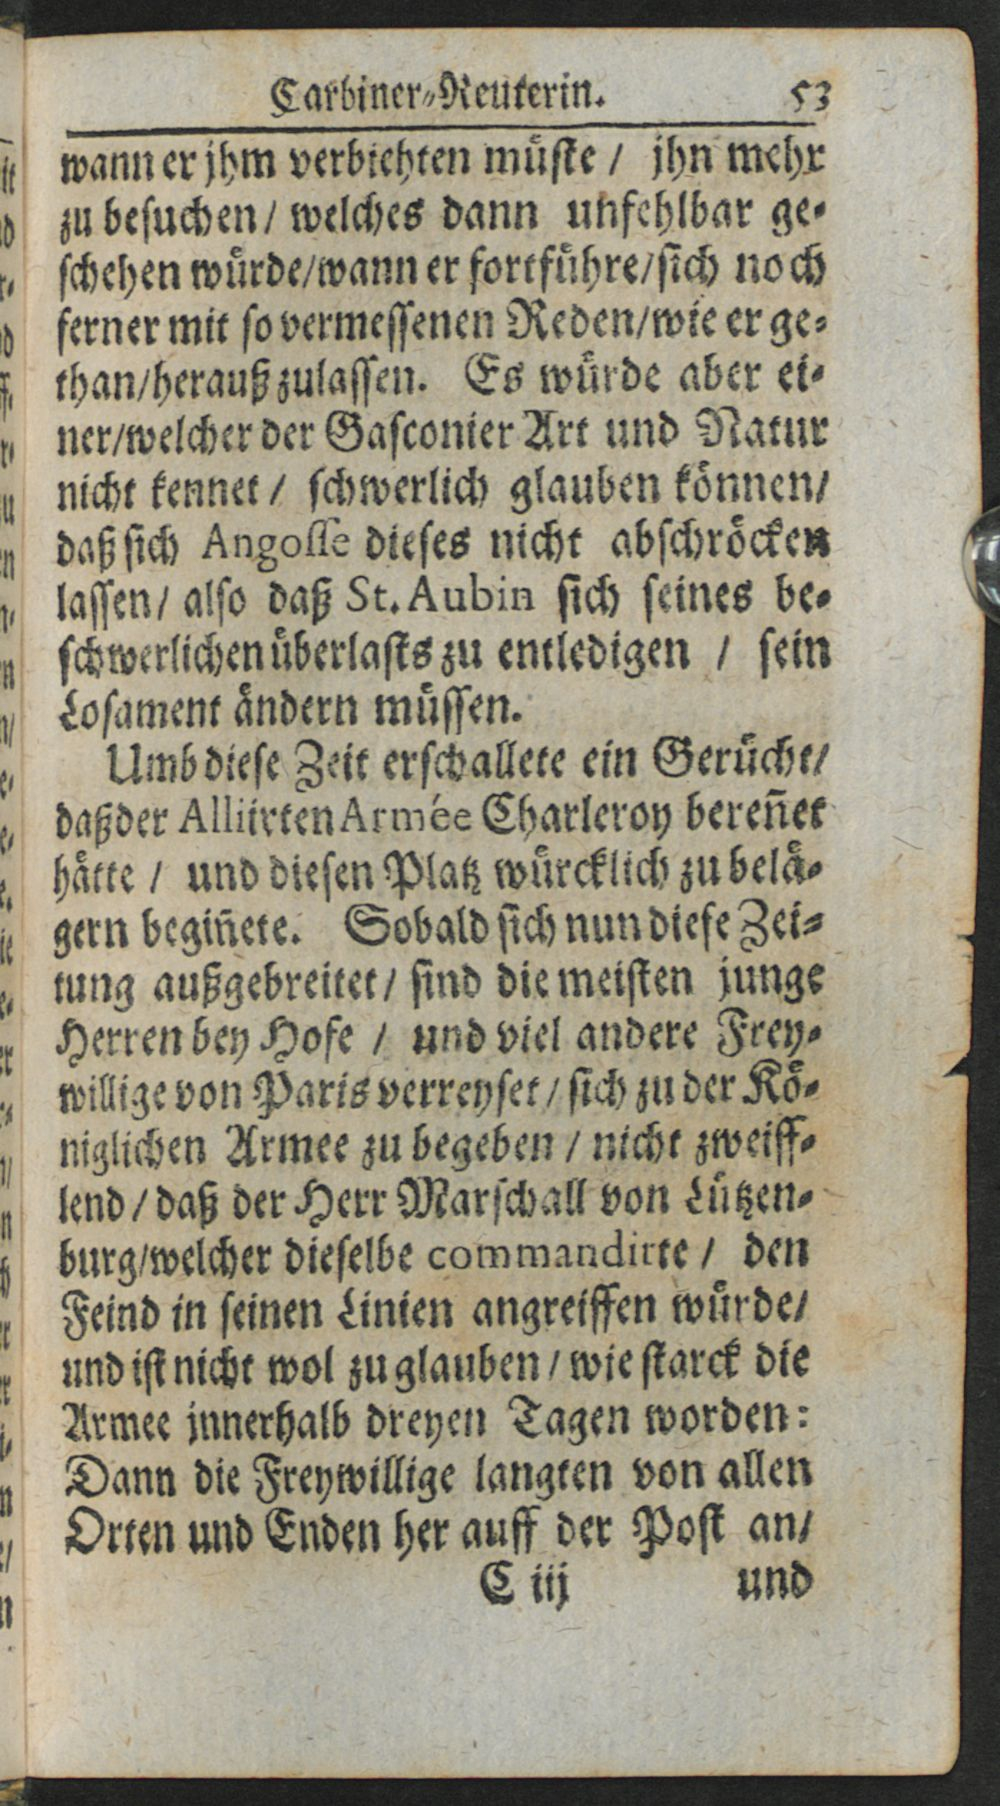 Carbiner-Reuterin. 53
wann er jhm verbiehten müste / jhn mehr
zu besuchen / welches dann unfehlbar ge-
schehen würde/wann er fortführe/sich noch
ferner mit so vermessenen Reden/wie er ge-
than/herauß zulassen. Es würde aber ei-
ner/welcher der Gasconier Art und Natur
nicht kennet / schwerlich glauben können/
daß sich Angosse dieses nicht abschröcken
lassen / also daß St. Aubin sich seines be-
schwerlichen überlasts zu entledigen / sein
Losament ändern müssen.
Umb diese Zeit erschallete ein Gerücht/
daß der Alliirten Armée Charleroy bereñet
hätte / und diesen Platz würcklich zu belä-
gern begiñete. Sobald sich nun diese Zei-
tung außgebreitet / sind die meisten junge
Herren bey Hofe / und viel andere Frey-
willige von Paris verreyset / sich zu der Kö-
niglichen Armee zu begeben / nicht zweiff-
lend / daß der Herr Marschall von Lützen-
burg/welcher dieselbe commandirte / den
Feind in seinen Linien angreiffen würde/
und ist nicht wol zu glauben / wie starck die
Armee jnnerhalb dreyen Tagen worden:
Dann die Freywillige langten von allen
Orten und Enden her auff der Post an/
C iij und